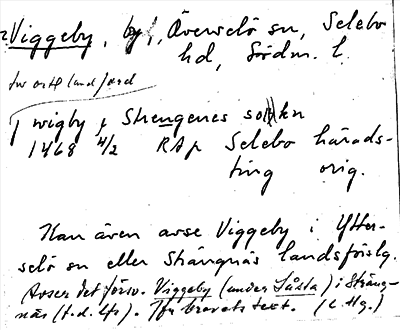 Viggeby, by, Överselö sn, Selebo
hd, Södm. l.
j wigby j Strengenes sokn
1468 4/2 RAp Selebo härads-
ting orig.
Kan även avse Viggeby i Ytter-
selö sn eller Strängnäs landsförslg.
Avser det försv. Viggeby (under Sästa) i Sträng-
näs (t.d. lfs). Jfr brevets text. (C.Hg.)